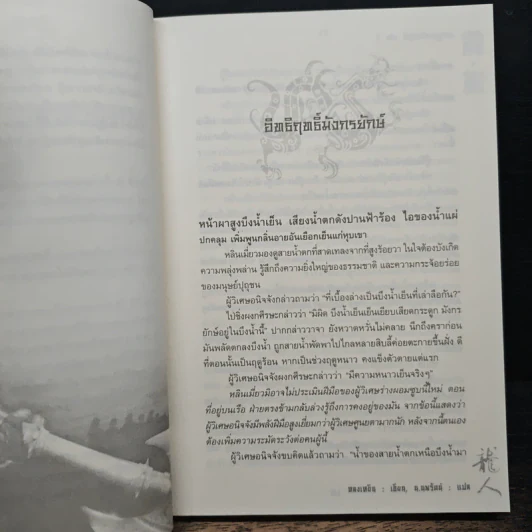 อิทธิฤทธิ์มังกรยักษ์
หน้าผาสูงบึงน้ำเย็น เสียงน้ำตกดังปานฟ้าร้อง ไอของน้ำแผ่
ปกคลุม เพิ่มพูนกลิ่นอายอันเยือกเย็นแก่หุบเขา
หลินเมี่ยวมองดูสายน้ำตกที่สาดเทลงจากที่สูงร้อยวา ในใจต้องบังเกิด
ความพลุ่งพล่าน รู้สึกถึงความยิ่งใหญ่ของธรรมชาติ และความกระจ้อยร่อย
ของมนุษย์ปุถุชน
ผู้วิเศษอนิจจังกล่าวถามว่า “ที่เบื้องล่างเป็นบึงน้ำเย็นที่เล่าลือกัน?”
ไป่ชิงผงกศีรษะกล่าวว่า “มิผิด บึงน้ำเย็นเยียบเสียดกระดูก มังกร
ยักษ์อยู่ในบึงน้ำนี้” ปากกล่าววาจา ยังหวาดหวั่นไม่คลาย นึกถึงคราก่อน
มันพลัดตกลงบึงน้ำ ถูกสายน้ำพัดพาไปไกลหลายสิบลี้ค่อยตะกายขึ้นฝั่ง ดี
ที่ตอนนั้นเป็นฤดูร้อน หากเป็นช่วงฤดูหนาว คงแข็งตัวตายแต่แรก
ผู้วิเศษอนิจจังผงกศีรษะกล่าวว่า “มีความหนาวเย็นจริงๆ”
หลินเมี่ยวมิอาจไม่ประเมินฝีมือของผู้วิเศษร่างผอมซูบนี้ใหม่ ตอน
ที่อยู่บนเรือ ฝ่ายตรงข้ามกลับล่วงรู้ถึงการคงอยู่ของมัน จากข้อนี้แสดงว่า
ผู้วิเศษอนิจจังมีพลังฝีมือสูงเยี่ยมกว่าผู้วิเศษศูนยตามากนัก หลังจากนี้ตนเอง
ต้องเพิ่มความระมัดระวังต่อคนผู้นี้
ผู้วิเศษอนิจจังขบคิดแล้วถามว่า “น้ำของสายน้ำตกเหนือบึงน้ำมา
龍
人
น. นพรัตน์ : แปล